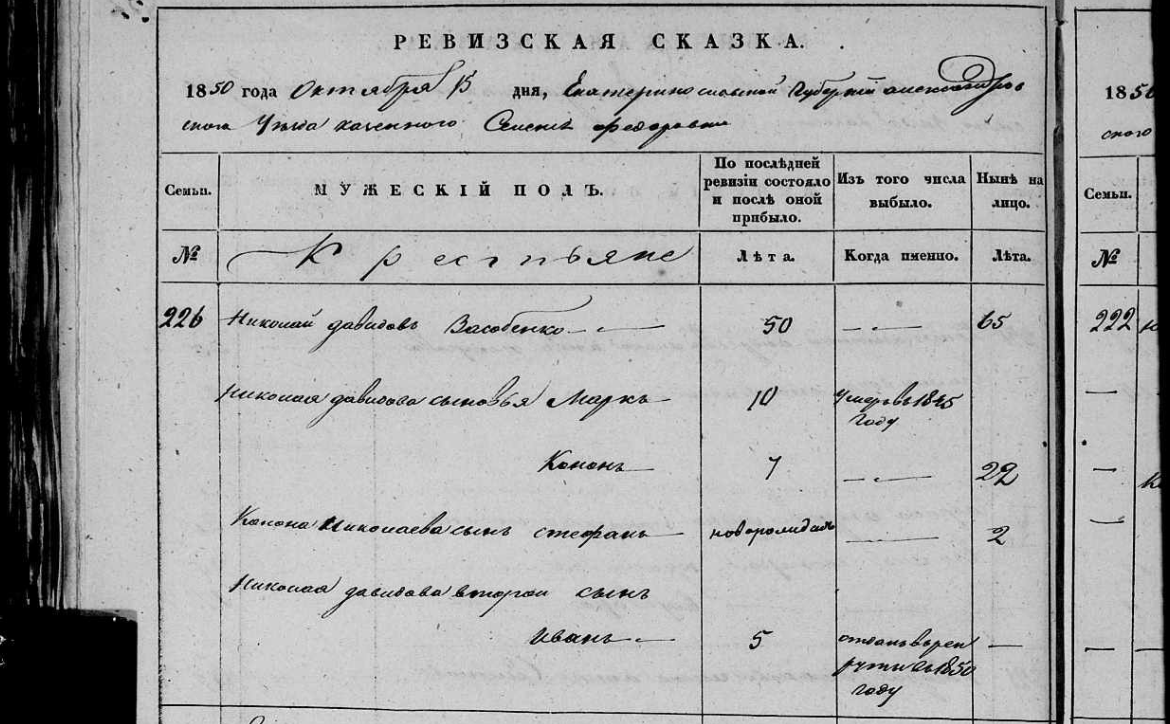 РЕВИЗСКАЯ СКАЗКА.
1850 года Октября 15 дня, Екатеринославской Губернии Александров
ского Уезда казенного Селенiя Федоровки
Семьи. МУЖЕСКІЙ ПОЛЪ. По послѣдней ревизіи состояло и послѣ оной прибыло. Изъ того числа выбыло. Нынѣ на лицо.
№ Крестьяне Лѣта. Когда именно. Лѣта.
226 Николай Давидовъ Засобенко 50 — 65
Николая Давидова сыновья Маркъ 10 умеръ въ 1845 году
Кононъ 7 — 22
Конона Николаева сынъ Стефанъ новорожденъ — 2
Николая Давидова второй сынъ
Иванъ 5 отданъ въ рекруты въ 1850 году —
185
ского
Семьи.
№
222